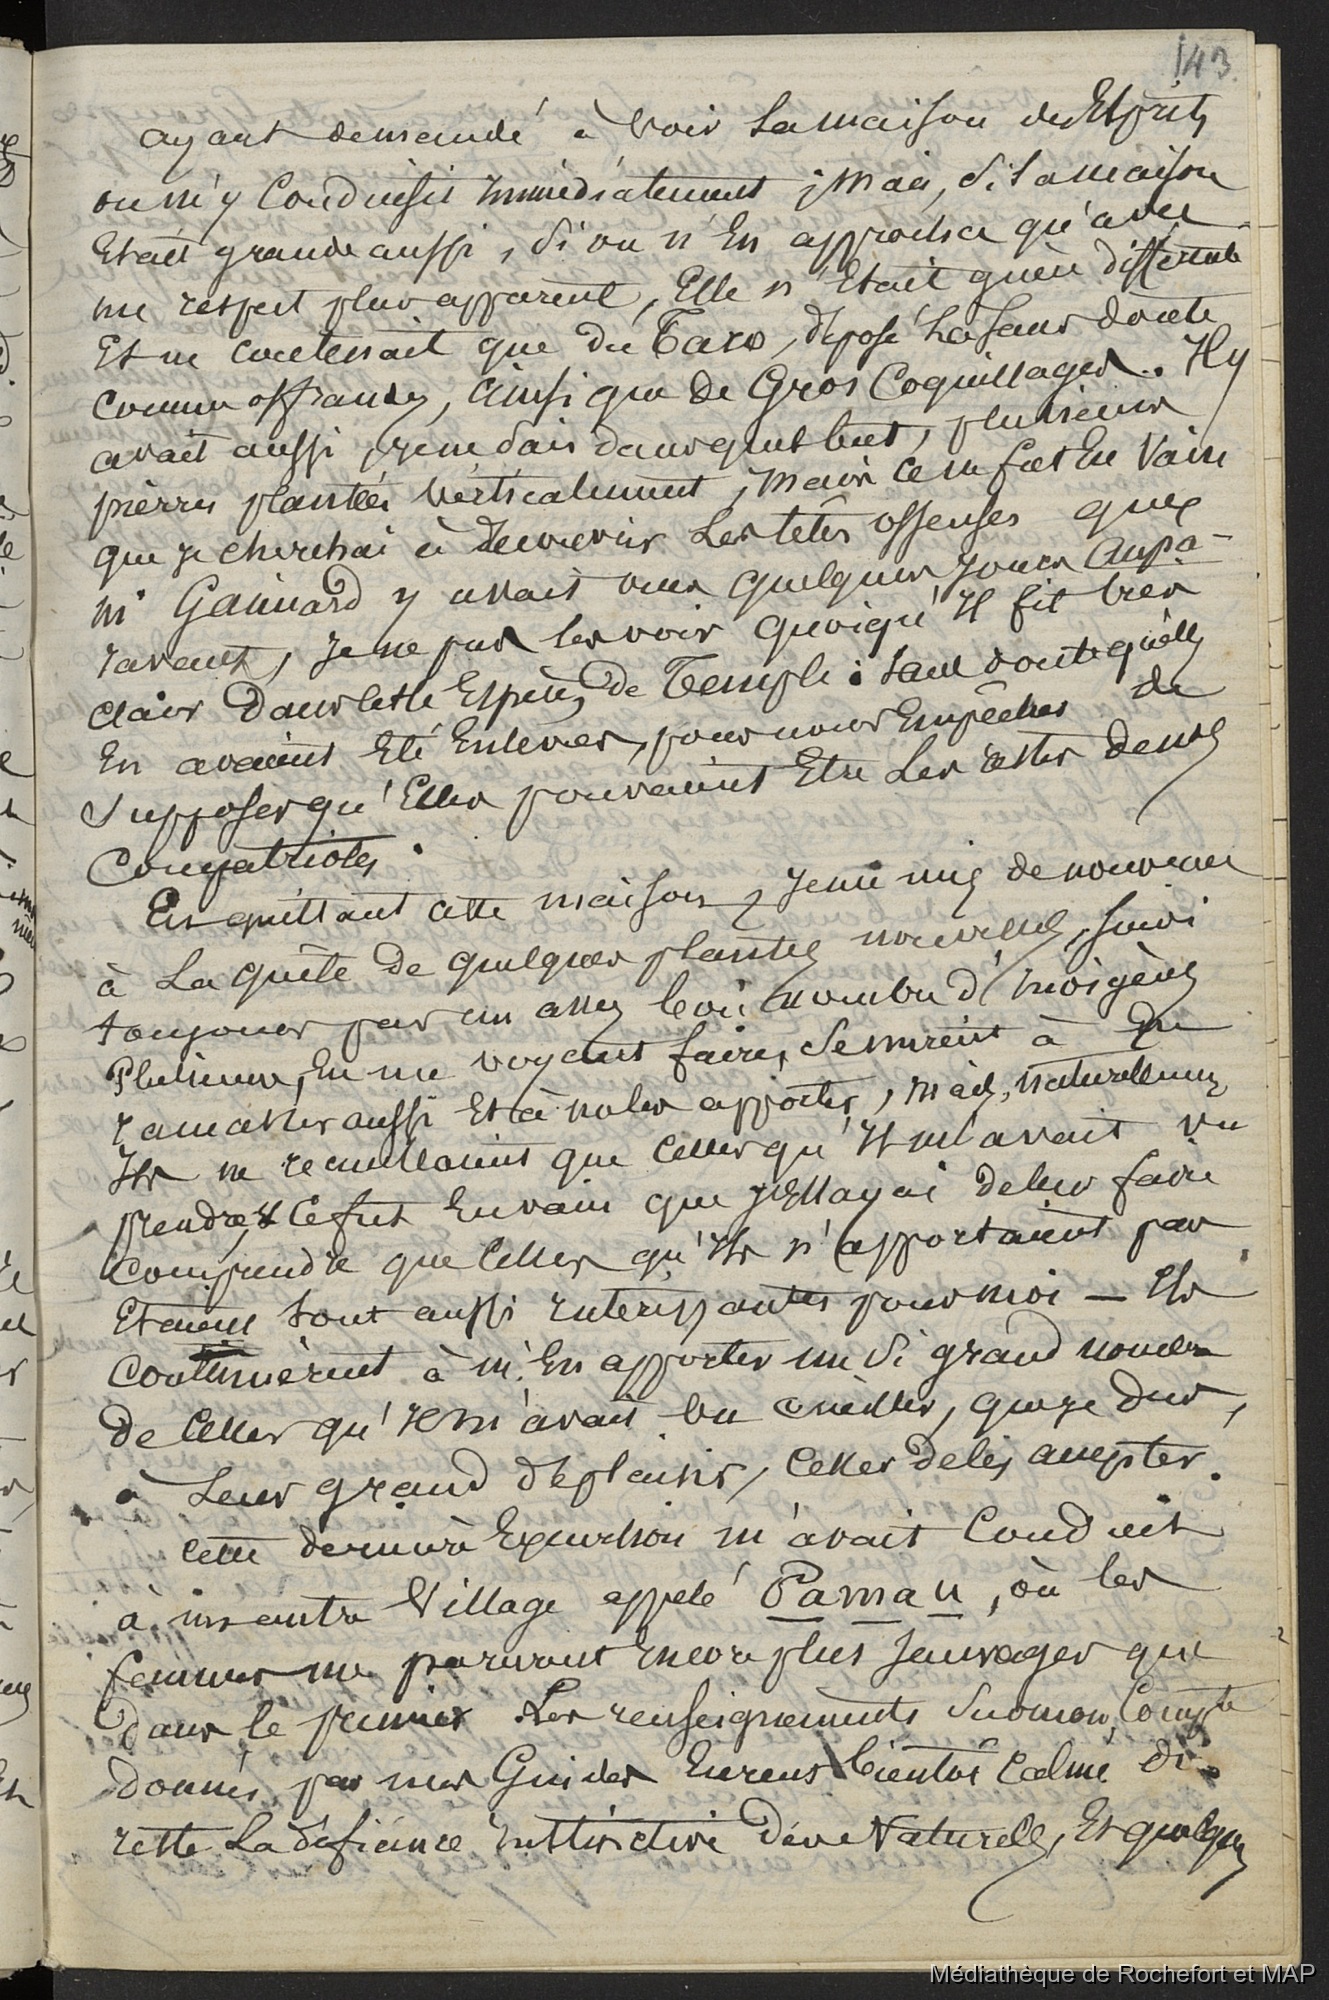 143.
ayant demandé à voir la maison des Esprits
on m'y Conduisit immédiatement ; mais, si la maison
Etait grande aussi, si on n'en approcha qu'avec
un respect plus apparent, Elle n'Etait guère différente
Et ne contenait que du Taro, déposé là sans doute
comme offrandes, ainsi que de Gros Coquillages. Il y
avait aussi, je ne sais dans quel but, plusieurs
pierres plantées verticalement ; mais ce ne fut En Vain
que je cherchai à découvrir Les têtes osseuses que
Mr Gaimard y avait vues quelques jours aupa-
ravant, je ne pus les voir quoiqu'il fit très
clair dans cette Espèce de Temple : sans doute qu'elles
En avaient Eté Enlevées, pour nous Empêcher de
supposer qu'Elles pouvaient Etre Les restes de nos
Compatriotes.
En quittant cette maison, je me mis de nouveau
à La quête de quelques plantes nouvelles, suivi
toujours par un assez bon nombre d'indigènes
Plusieurs, En me voyant faire, se mirent à En
ramasser aussi Et à me les apporter, mais, naturellement,
Ils ne recueillaient que celles qu'Il m'avait vu
prendre, & Ce fut En vain que j'Essayai de leur faire
Comprendre que Celles qu'Ils n'apportaient pas
Etaient tout aussi intéressantes pour moi — Ils
Continuèrent à m'En apporter un si grand nombre
de Celles qu'Il m'avait vu cueillir, que je dus,
à Leur grand déplaisir, Cesser de les accepter.
Cette dernière Excursion m'avait Conduit
à un autre Village appelé Pamau, où les
femmes me parurent Encore plus sauvages que
dans le premier. Les renseignements sur mon Compte
donnés par mes Guides Eurent bientôt Calmé di
rette La défiance instinctive de ces Naturels, Et quelques
Médiathèque de Rochefort et MAP